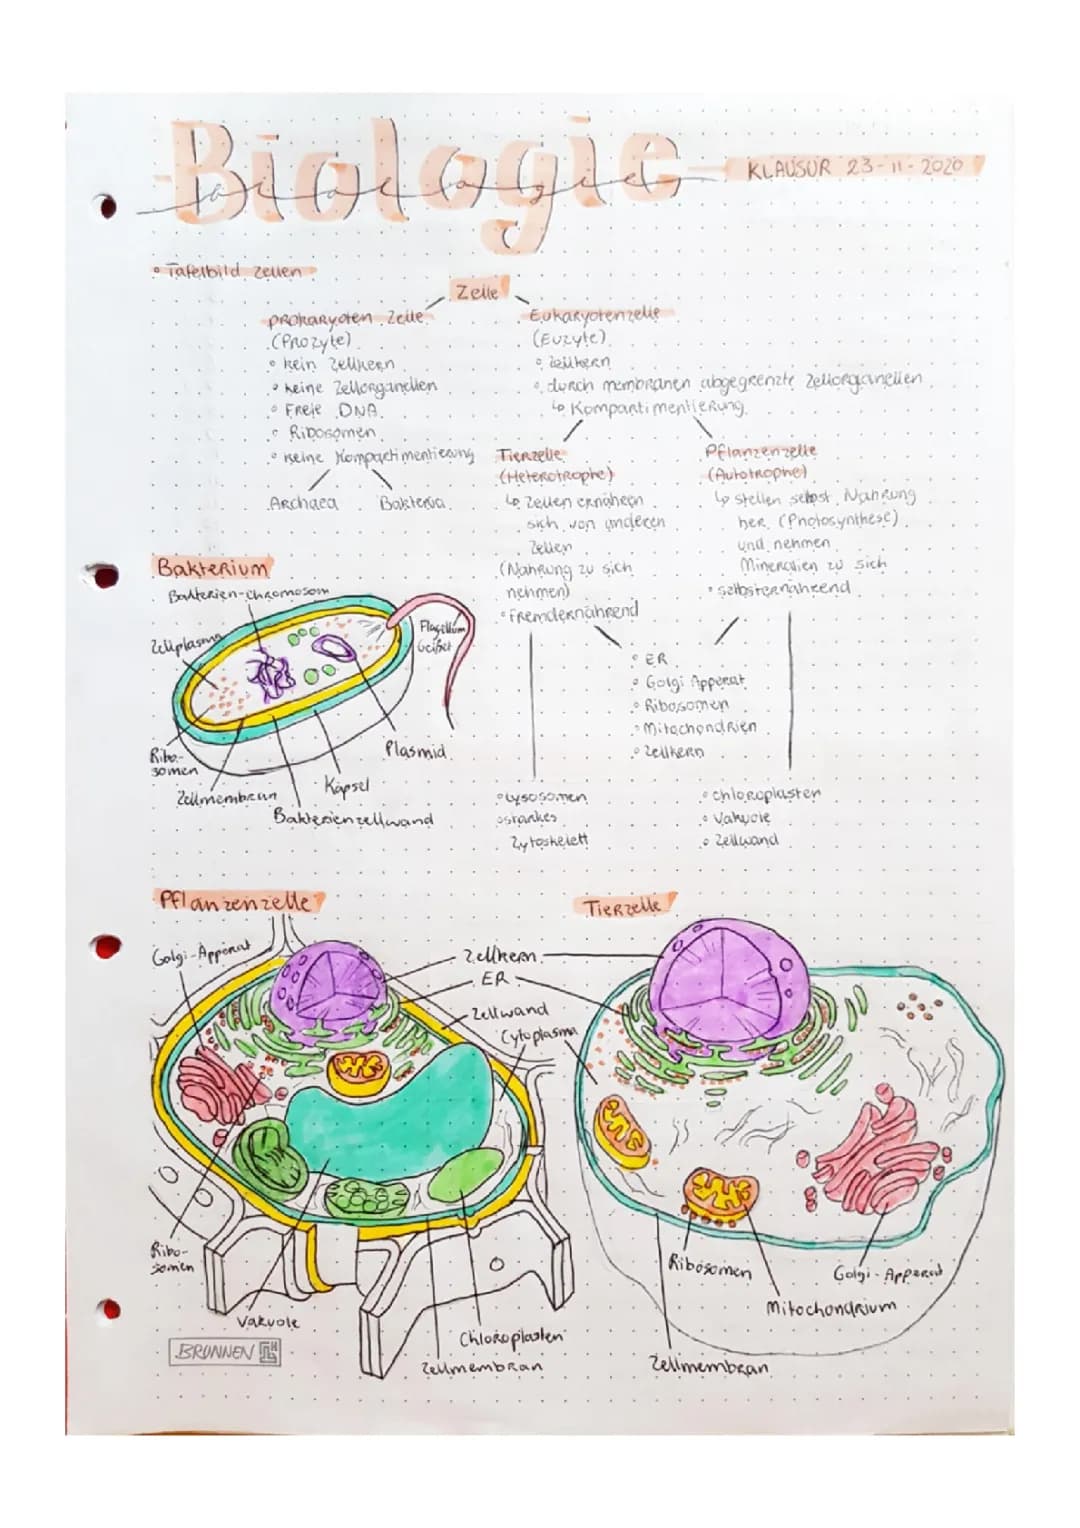 Biologie
biologie
KLAUSUR 23-11-2020
° Tafelbild Zellen
Zelle
Prokaryoten Zelle
(Prozyte)
° kein Zellkern
° keine Zellorganellen
° Freie DNA
° Ribosomen
° keine Kompartimentierung
Archaea
Bakteria
Eukaryotenzelle
(Euzyte)
° Zellkern
° durch membranen abgegrenzte Zellorganellen
↳ Kompartimentierung
Tierzelle
(Heterotrophe)
↳ Zellen ernähren
sich von anderen
Zellen
(Nahrung zu sich
nehmen)
° Fremdernährend
Pflanzenzelle
(Autotrophe)
↳ stellen selbst Nahrung
her (Photosynthese)
und nehmen
Mineralien zu sich
° selbsternährend
° ER
° Golgi Apperat
° Ribosomen
° Mitochondrien
° Zellkern
° Lysosomen
° starkes
Zytoskelett
° chloroplasten
° Vakuole
° Zellwand
Bakterium
Bakterien-chromosom
Zellplasma
Flagellum
Geißel
Plasmid
Ribo-
somen
Zellmembran
Kapsel
Bakterienzellwand
Pflanzenzelle
Tierzelle
Golgi-Apperat
Zellkern
ER
Zellwand
Cytoplasma
Ribo-
somen
Vakuole
Chloroplasten
Zellmembran
Ribosomen
Golgi-Apperat
Mitochondrium
Zellmembran
BRUNNEN